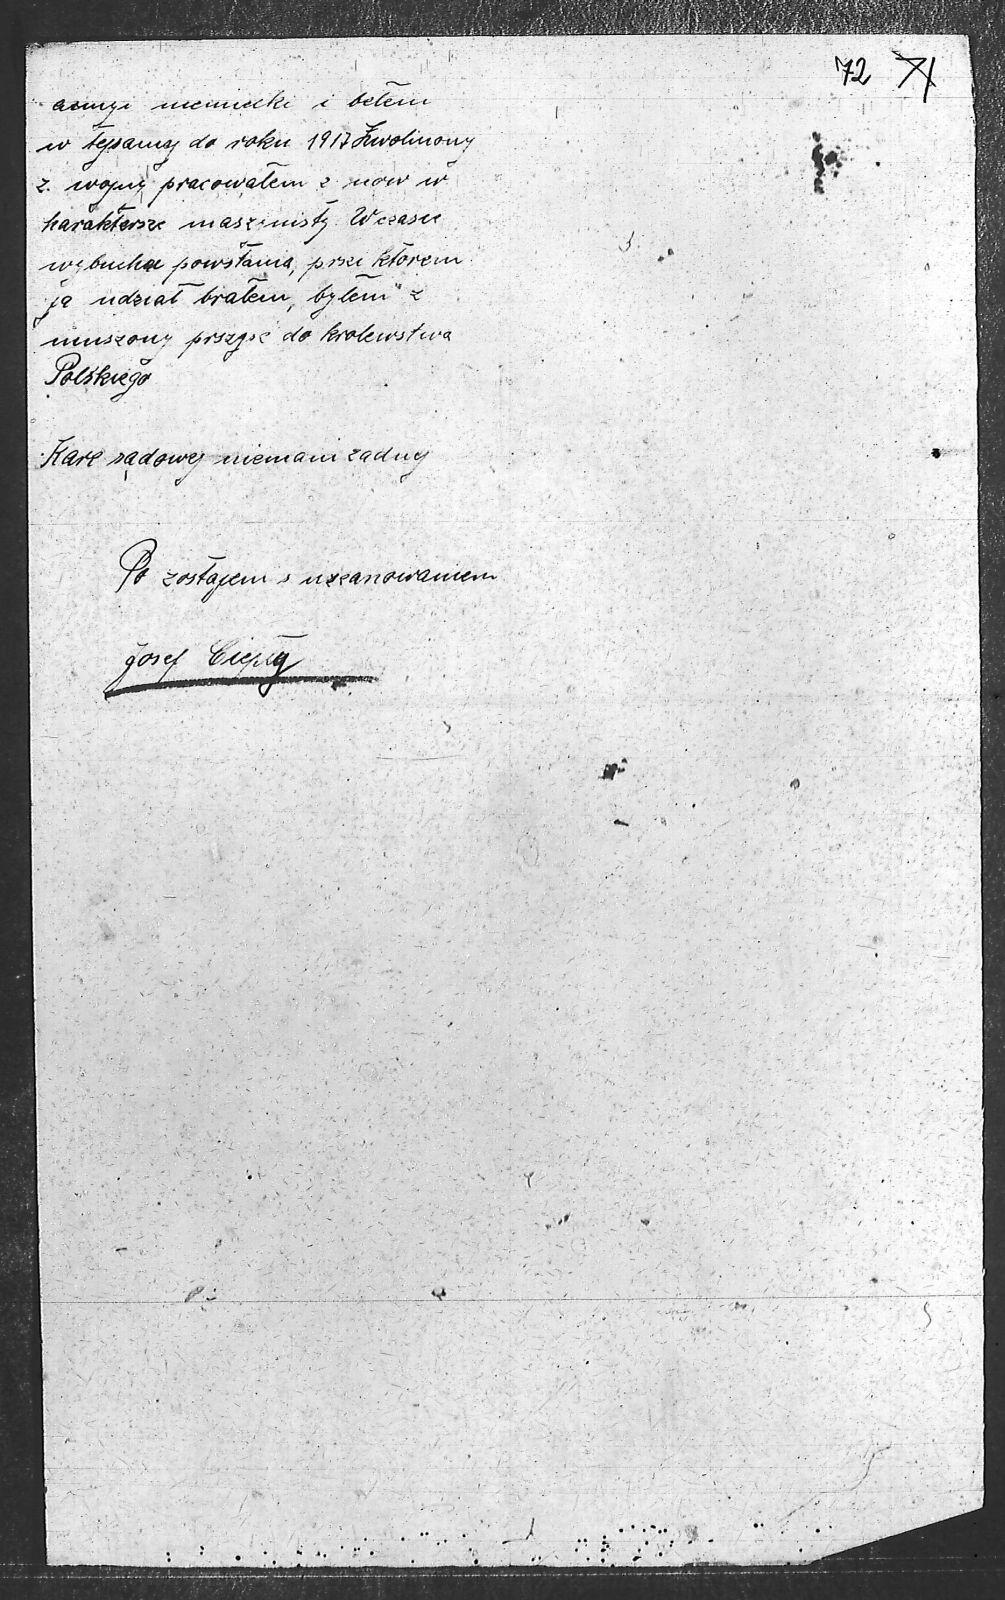 72 71
armji niemiecki i belem
w tej samy do roku 1917 Zwolniony
z wojny pracowałem z now w
harakterze maszynisty. W czasie
wybuchu powstania, prze którem
ja udział brałem, byłem z
muszony przyjść do krolewstwa
Polskiego
Kare sądowej niemam zadny
Po zostajem s uszanowaniem
Josef